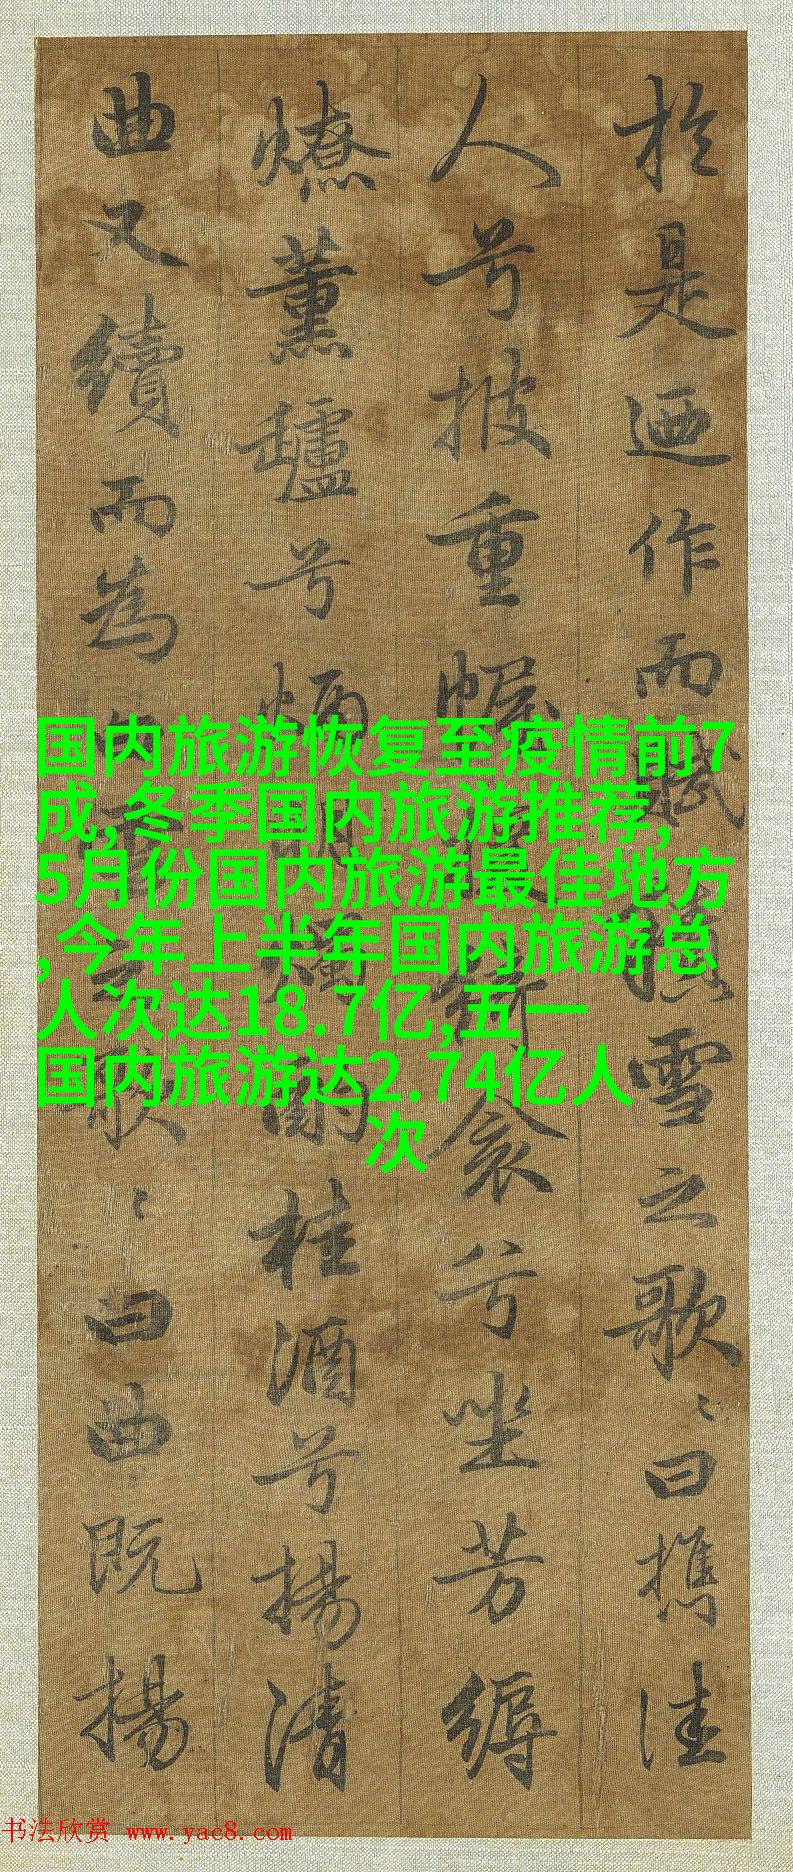 於是迺作而賦積雪之歌〻曰攜佳
人兮披重幄綺衾兮坐芳縟
燎薰罏兮炳燭酌桂酒兮揚清
曲又續而為白雪之歌〻曰曲既揚
国内旅游恢复至疫情前7
成,冬季国内旅游推荐,
5月份国内旅游最佳地方
,今年上半年国内旅游总
人次达18.7亿,五一
国内旅游达2.74亿人
次
书法欣赏 www.yac8.com